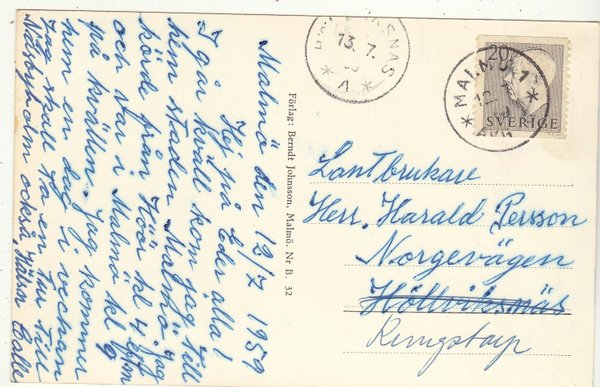 Malmö den 12/7 1959
Hej på Eder alla!
I går kväll kom jag till
hem staden Malmö. Jag
körde från Höör kl 4 e/m
och var i Malmö kl 9
på kvällen. Jag kommer
hem en dag i veckan
Jag skall ta en tur till
Näsbyholm också. Hälsn Calle
Förlag: Berndt Johnsson, Malmö. Nr B. 32
SNÄS
13. 7.
A
20
SVERIGE
MALMÖ 1
12. 7
Lantbrukare
Herr. Harald Persson
Norgevägen
Höllviksnäs